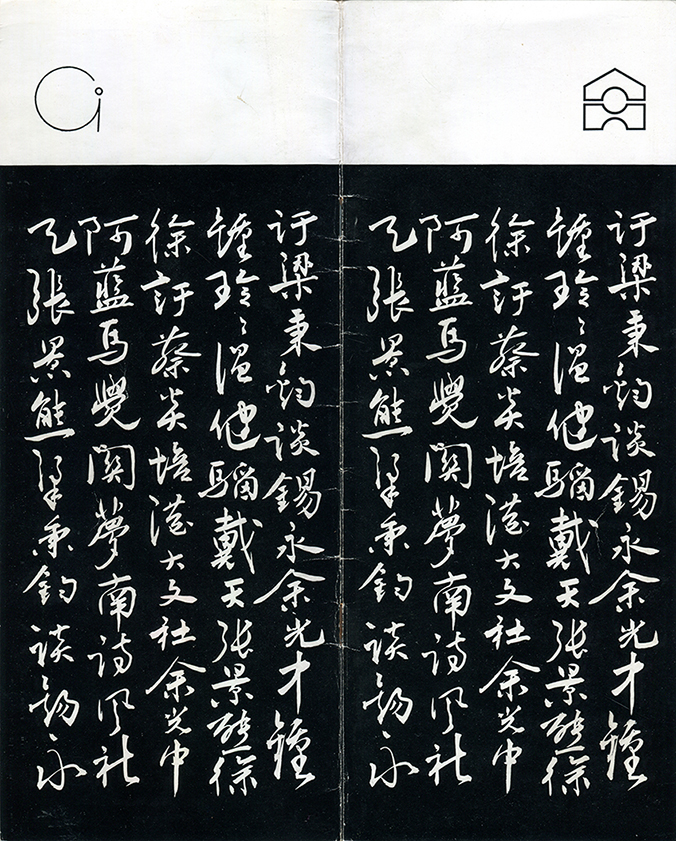 訏梁秉鈞談錫永余光中鍾
鍾玲々溫健騮戴天張景熊徐
徐訏蔡炎培港大文社余光中
阿藍馬覺關夢南詩風社
天張景熊梁秉鈞談錫永
訏梁秉鈞談錫永余光中鍾
鍾玲々溫健騮戴天張景熊徐
徐訏蔡炎培港大文社余光中
阿藍馬覺關夢南詩風社
天張景熊梁秉鈞談錫永